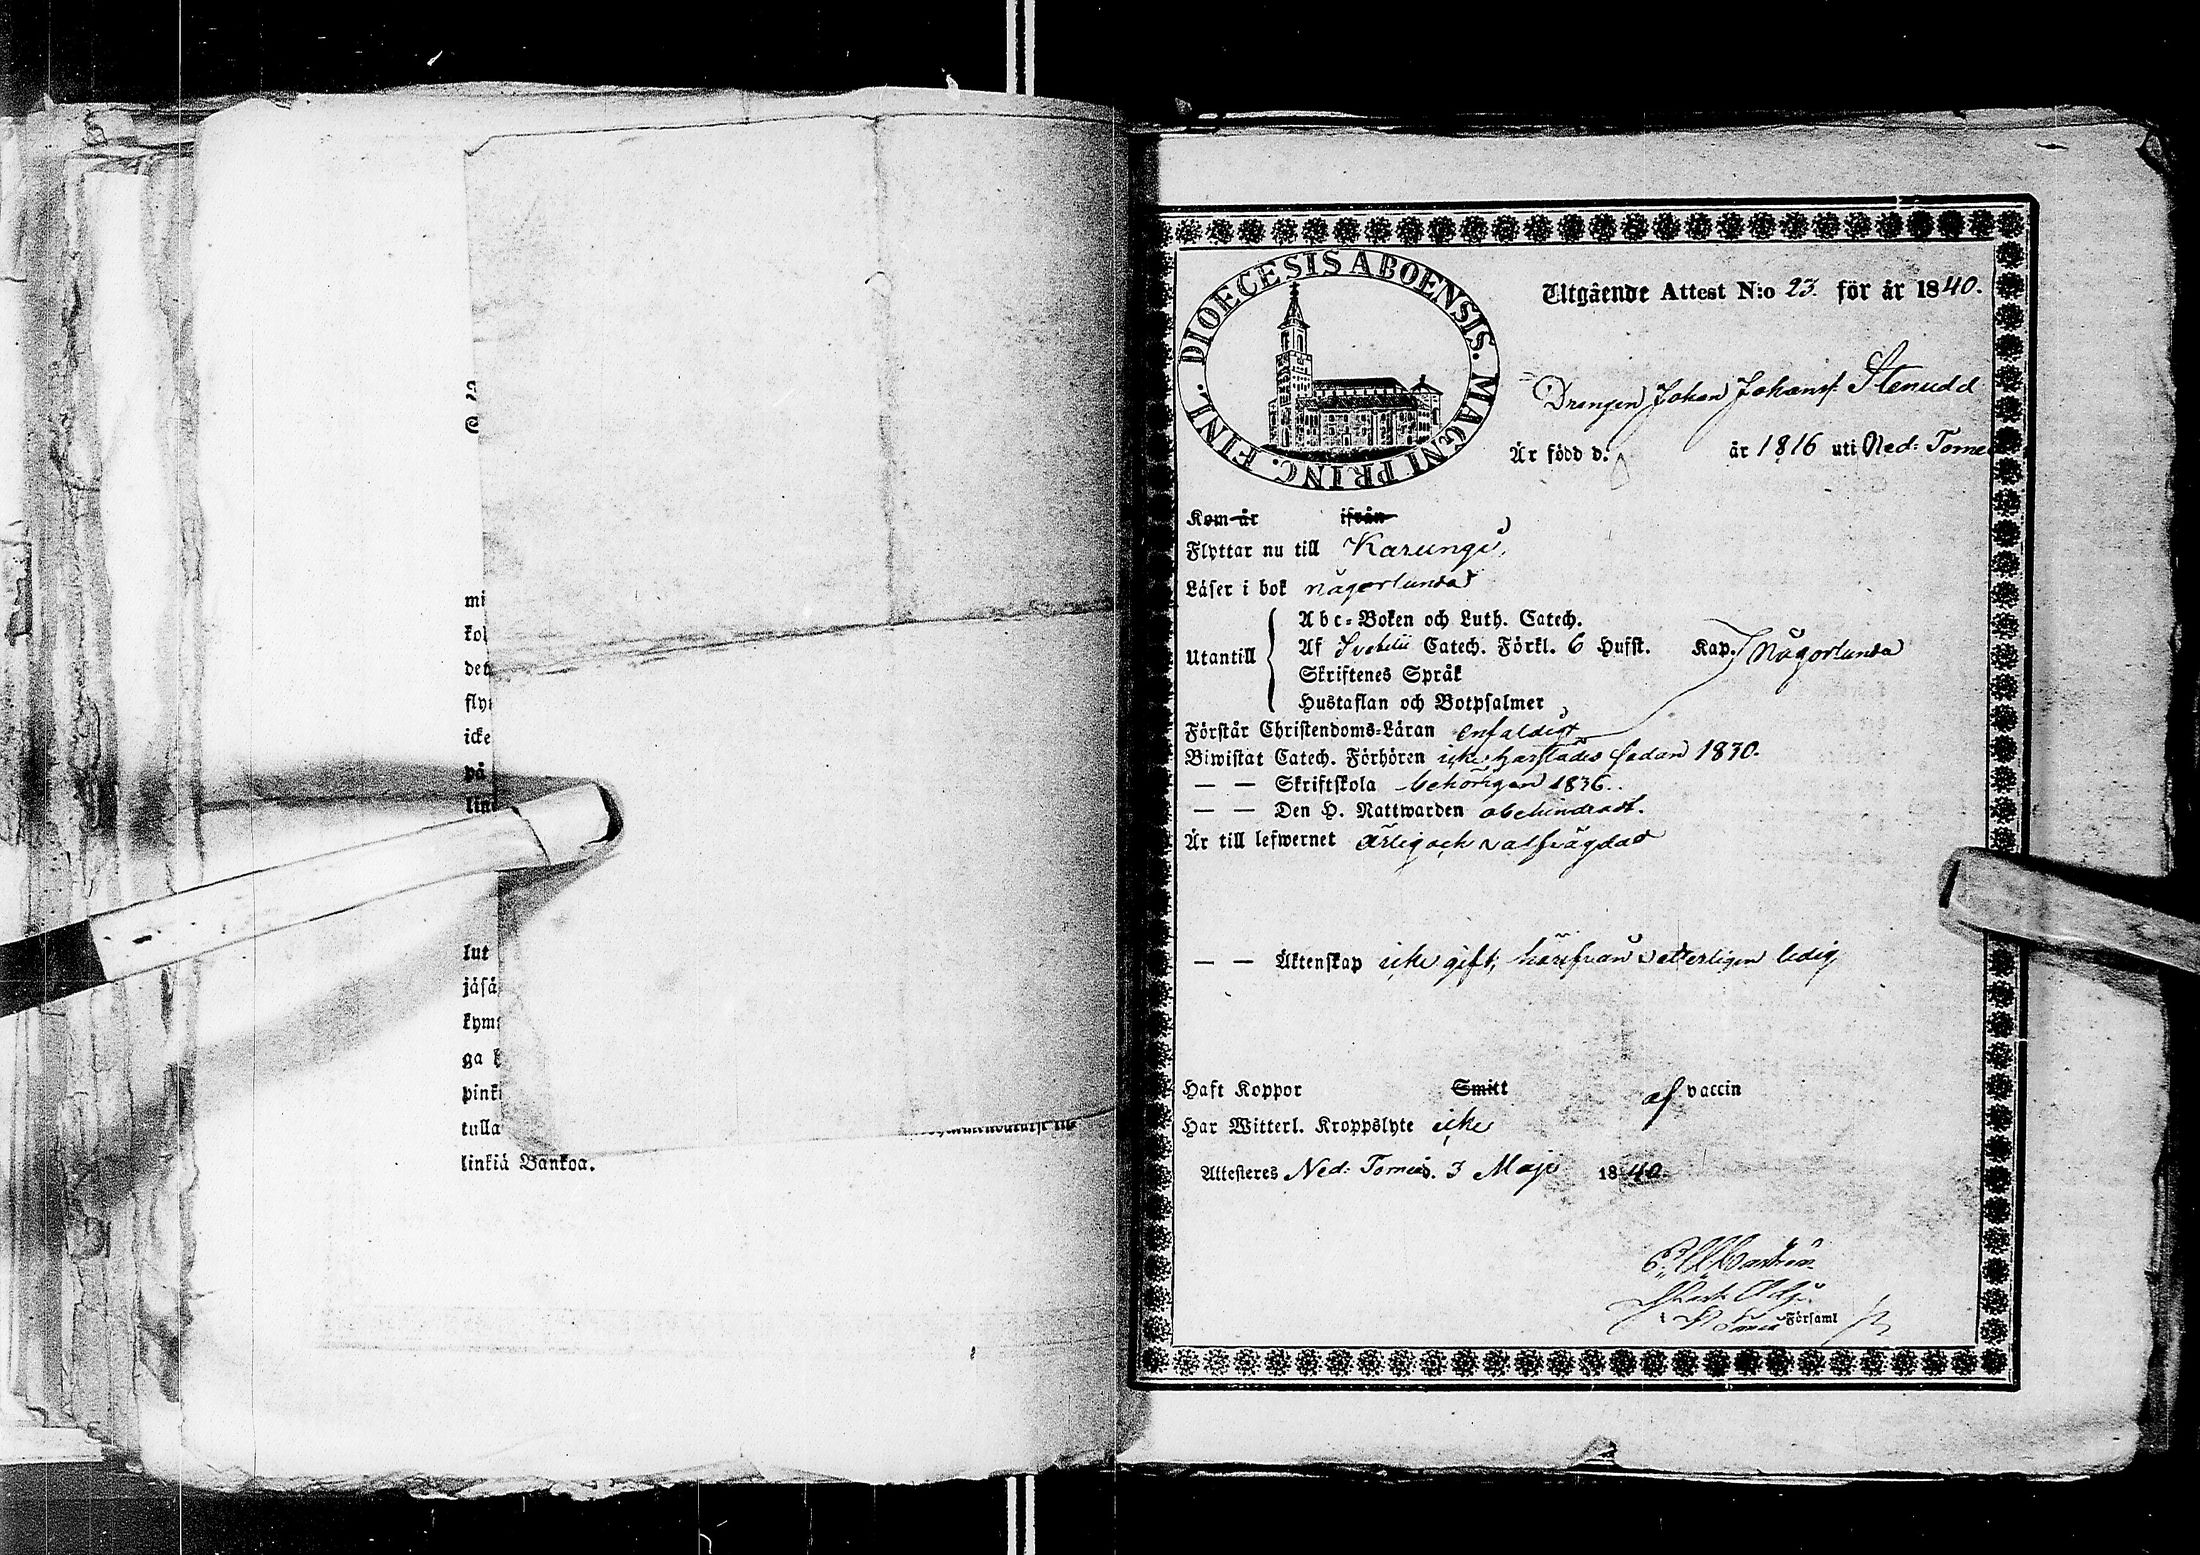 mi
kol
det
flyt
icke
på
lin
lut
jäsä
kyms
ga
pink
tulla
linkiä Bankoa.
DIOECESIS ABOENSIS. MAGNI PRINC. FINL.
Utgående Attest N:o 23. för år 1840.
Drengen Johan Johansf. Stenudd
Är född d. år 1816 uti Ned: Torne
Kom år ifrån
Flyttar nu till Karungi,
Läser i bok någorlunda
Utantill
Abc-Boken och Luth. Catech.
Af Svebelii Catech. Förkl. 6 Hufst. Kap. Någorlunda
Skriftenes Språk
Hustaflan och Botpsalmer
Förstår Christendoms-Läran enfaldigt
Biwistat Catech. Förhören icke härstädes sedan 1830.
— — Skriftskola behörigen 1836.
— — Den H. Nattwarden obehindradt.
Är till lefwernet ärlig och välfrägdad
— — Äktenskap icke gift, härifrån veterligen ledig
Haft Koppor Smitt af vaccin
Har Witterl. Kroppslyte icke
Attesteres Ned: Torneå d. 3 Maji 1840.
i N Torneå Församl